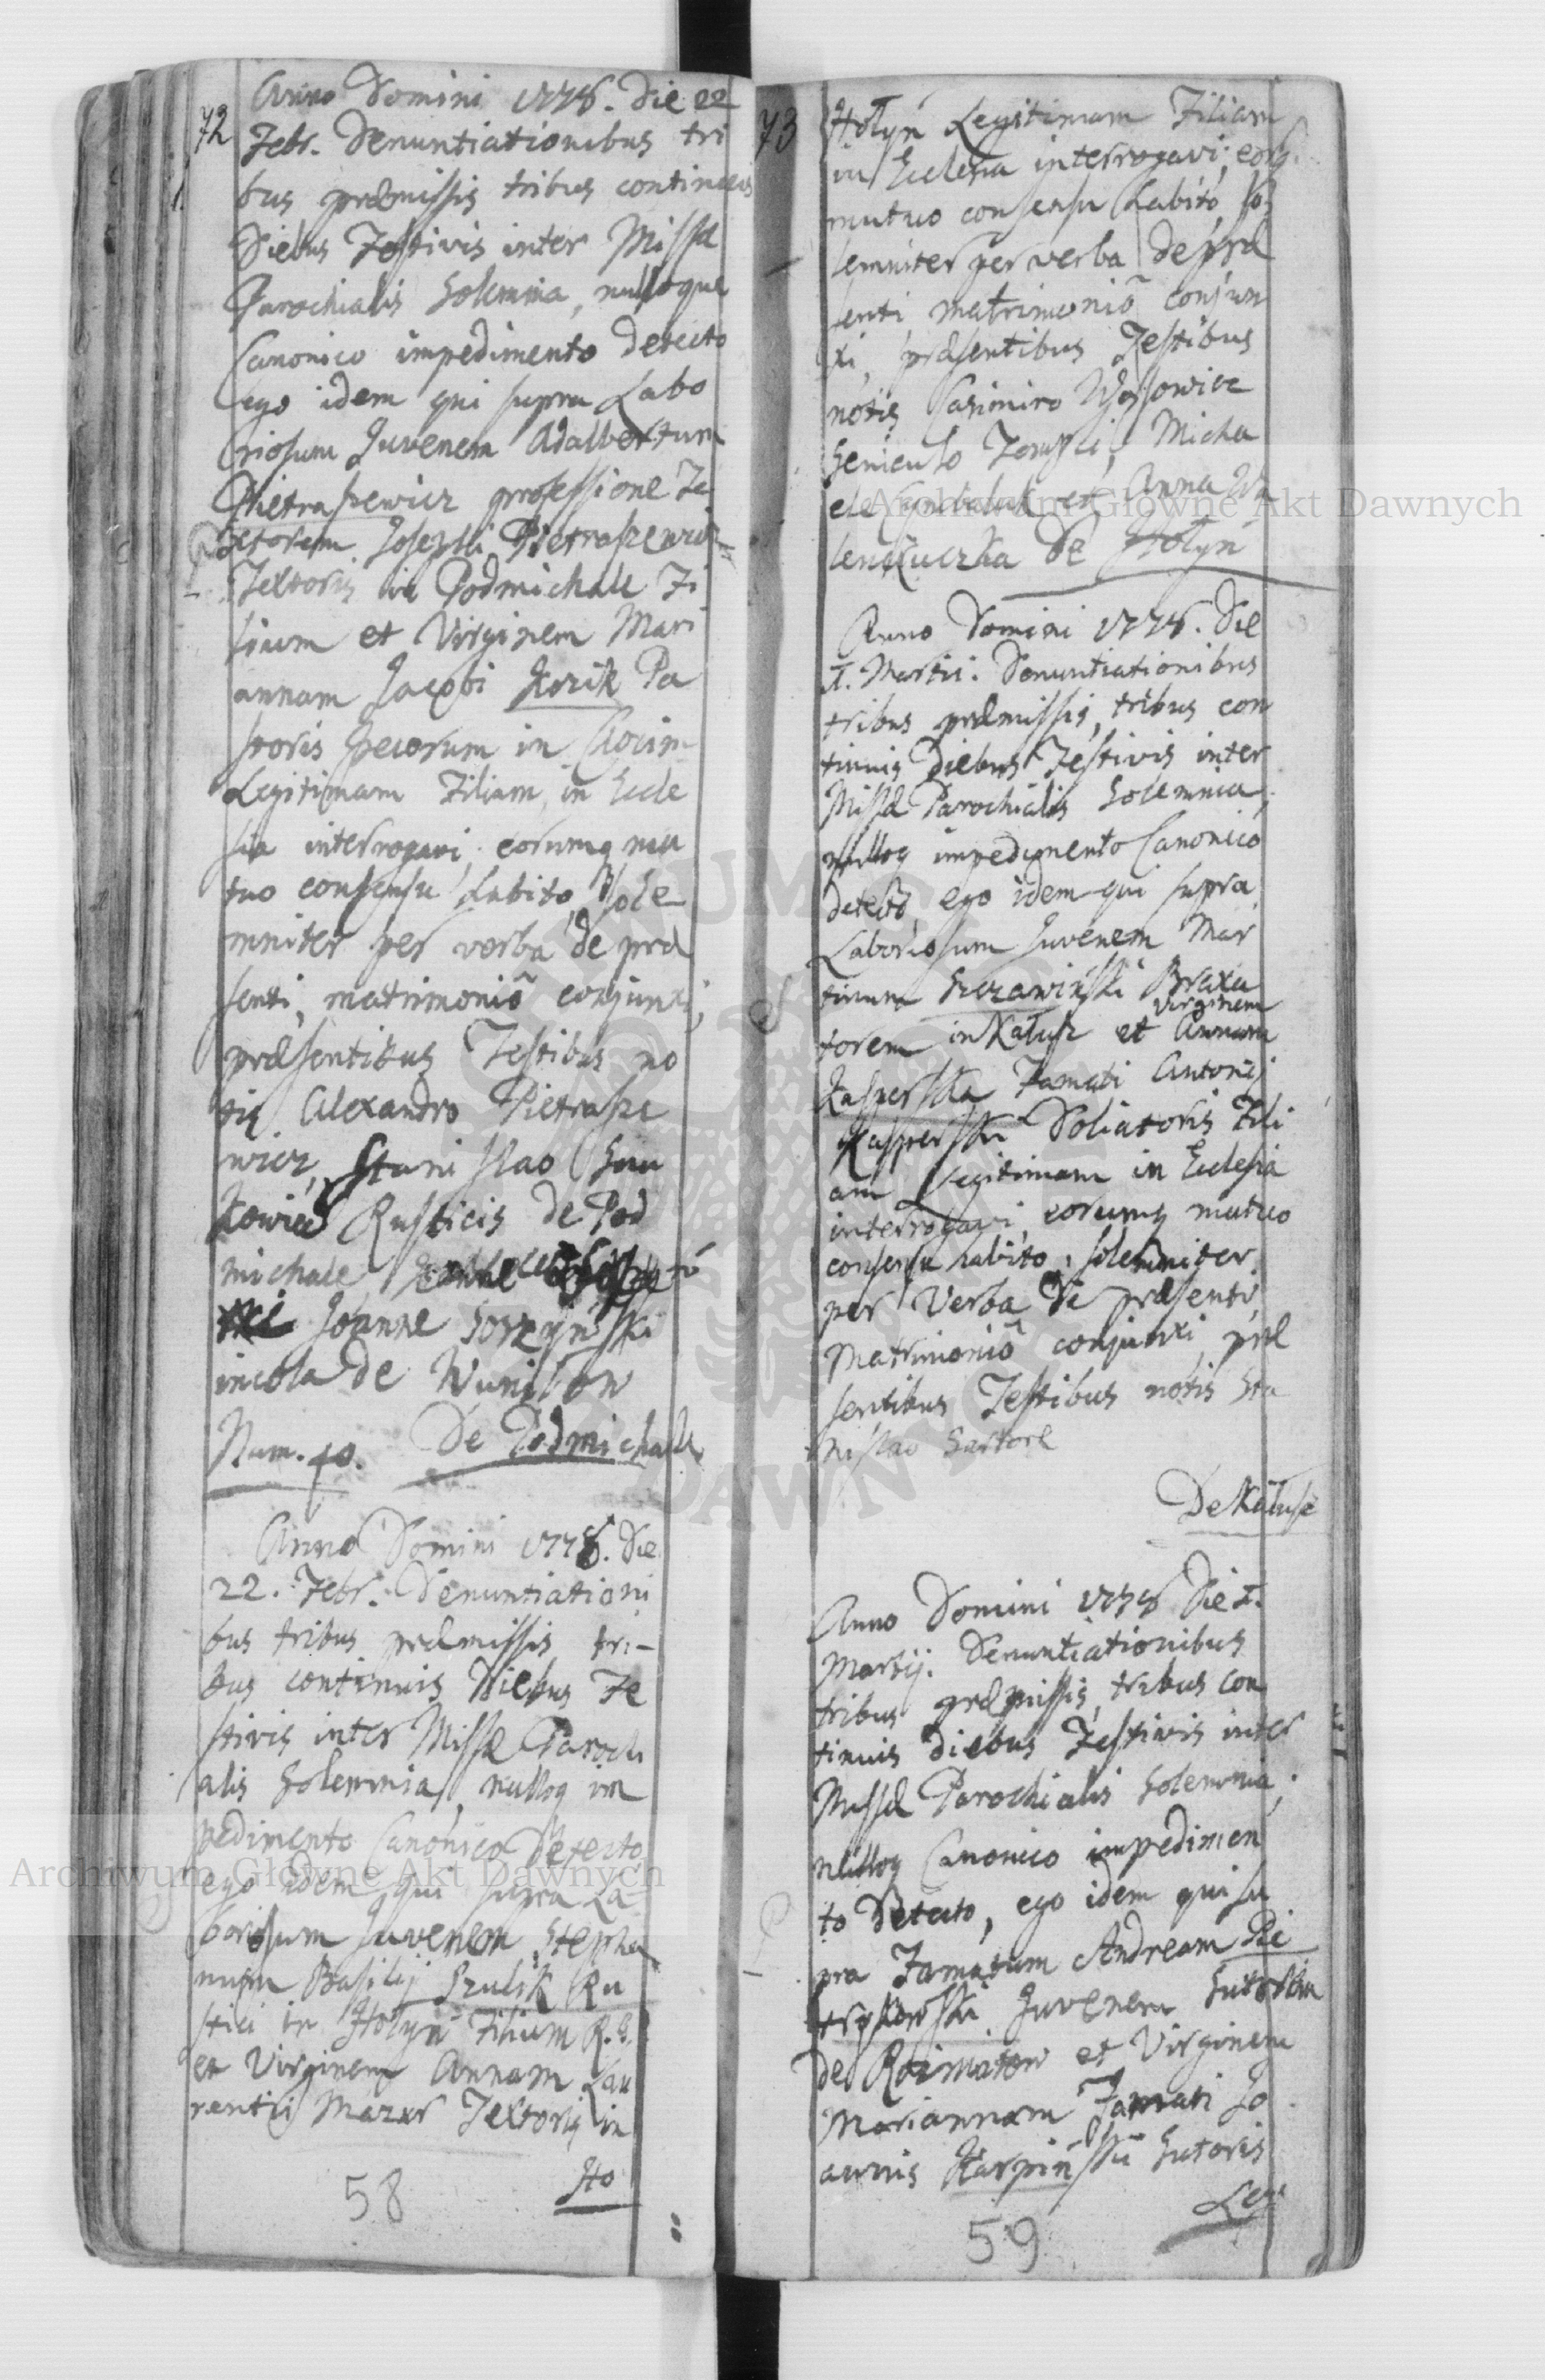 72
Anno Domini 1778. Die 22
Febr. Denuntiationibus tri
bus præmissis tribus continuis
Diebus Festivis inter Missæ
Parochialis Solemnia, nulloque
Canonico impedimento detecto
ego idem qui supra Labo
riosum Juvenem Adalbertum
Pietraszewicz professione Te
xtorem Josephi Pietraszewicz
Textoris in Podmichale Fi
lium et Virginem Mari
annam Jacobi Kozik Pa
storis pecorum in
Legitimam Filiam, in Eccle
sia interrogavi, eorumq mu
tuo consensu habito, sole
mniter per verba de præ
senti, matrimoniō conjunxi,
præsentibus Testibus no
tis Alexandro Pietrasze
wicz, Stanislao
Rusticis de Pod
michale
Joanne Gorzyński
incola de
Num. 40. De Podmichale
Anno Domini 1778. Die
22. Febr. Denuntiationi
bus tribus præmissis tri-
bus continuis Diebus Fe
stivis inter Missæ Parochi
alis Solemnia, nulloq im
pedimento Canonico Detecto
ego idem qui supra La-
boriosum Juvenem Stepha
num Basilij Szulik Ru
stici in Hołyń Filium R. G.
et Virginem Annam Lau
rentij Mazur Textoris in
Ho
58
73
Hołyń Legitimam Filiam
in Ecclesia interrogavi, eorq
mutuo consensu habito, so
lemniter per verba de præ
senti matrimoniō conjun
xi, præsentibus Testibus
notis Casimiro Wąsowicz
Seniculo Micha
ele Cymbaluk et Anna
de Hołyń
Anno Domini 1778. Die
1. Martii. Denuntiationibus
tribus præmissis, tribus con
tinuis Diebus Festivis inter
Missæ Parochialis Solemnia,
nulloq impedimento Canonico
detecto, ego idem qui supra
Laboriosum Juvenem Mar
tinum Szczawiński Braxa
torem in Kałusz et Virginem Annam
Kasperska Famati Antonij
Kasperski Doliatoris Fili
am Legitimam in Ecclesia
interrogavi, eorumq mutuo
consensu habito, solemniter
per Verba de præsenti,
matrimoniō conjunxi, præ
sentibus Testibus notis Sta
nislao Sartore
De Kałusz
Anno Domini 1778 Die 1.
Martij. Denuntiationibus
tribus præmissis, tribus con
tinuis diebus Festivis inter
Missæ Parochialis Solemnia,
nulloq Canonico impedimen
to Detecto, ego idem qui su
pra Famatum Andream Pie
trykowski Juvenem Sutorem
de Rozniatow et Virginem
Mariannam Famati Jo
annis Karpiński Sutoris
Leg
59
Archiwum Główne Akt Dawnych
Archiwum Główne Akt Dawnych